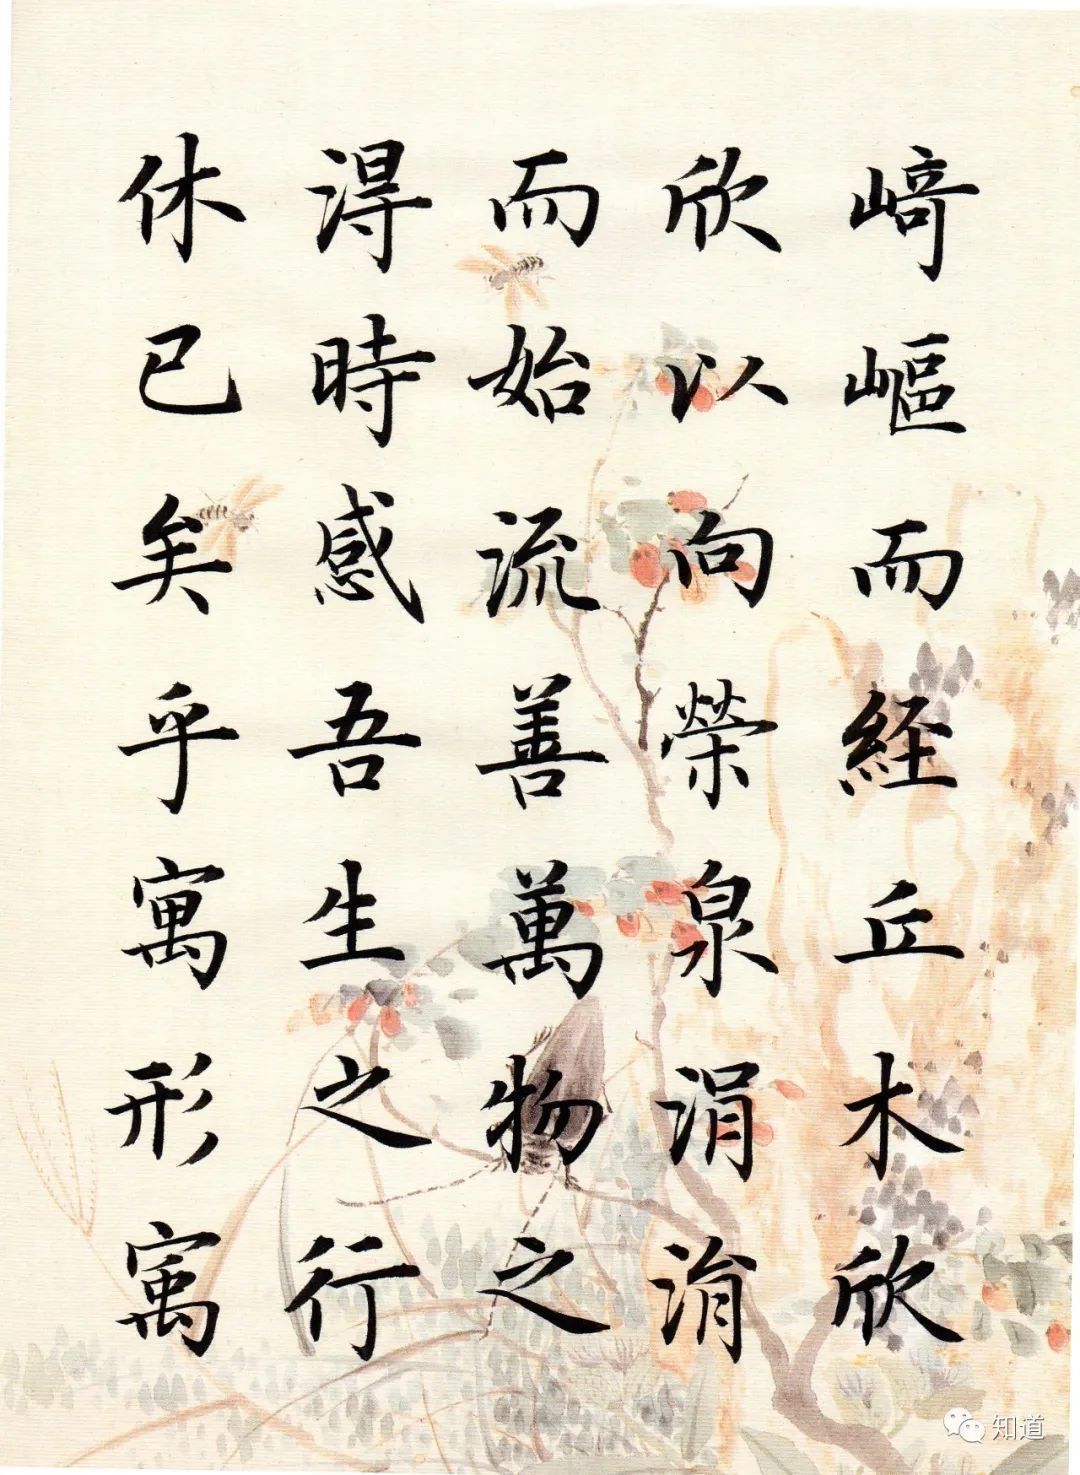 崎嶇而経丘木欣
欣以向榮泉涓涓
而始流善萬物之
得時感吾生之行
休已矣乎寓形寓
知道